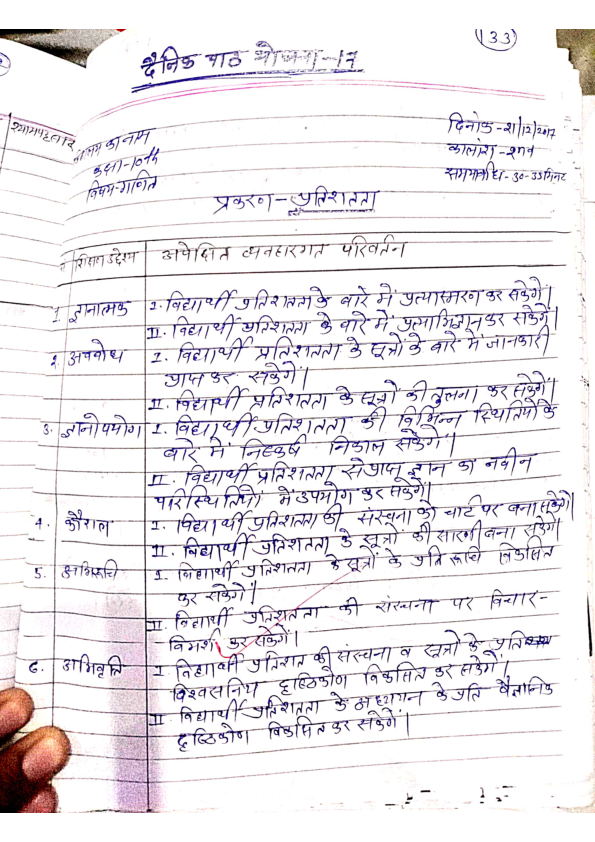 133
दैनिक पाठ योजना-17
श्यामपट्टसार
का नाम
कक्षा-10th
विषय-गणित
दिनांक-21/12/2017
कालांश-
30-35 मिनट
प्रकरण-प्रतिशतता
शिक्षण उद्देश्य अपेक्षित व्यवहारगत परिवर्तन
1. ज्ञानात्मक I. विद्यार्थी प्रतिशतता के बारे में प्रत्यास्मरण कर सकेंगे।
II. विद्यार्थी प्रतिशतता के बारे में प्रत्याभिज्ञान कर सकेंगे।
2. अवबोध I. विद्यार्थी प्रतिशतता के सूत्रों के बारे में जानकारी
प्राप्त कर सकेंगे।
II. विद्यार्थी प्रतिशतता के सूत्रों की तुलना कर सकेंगे।
3. ज्ञानोपयोग I. विद्यार्थी प्रतिशतता की विभिन्न स्थितियों के
बारे में निष्कर्ष निकाल सकेंगे।
II. विद्यार्थी प्रतिशतता से प्राप्त ज्ञान का नवीन
परिस्थितियों में उपयोग कर सकेंगे।
4. कौशल I. विद्यार्थी प्रतिशतता की संरचना को चार्ट पर बना सकेंगे।
II. विद्यार्थी प्रतिशतता के सूत्रों की सारणी बना सकेंगे।
5. अभिरूचि I. विद्यार्थी प्रतिशतता के सूत्रों के प्रति रूचि विकसित
कर सकेंगे।
II. विद्यार्थी प्रतिशतता की संरचना पर विचार-
विमर्श कर सकेंगे।
6. अभिवृत्ति I विद्यार्थी प्रतिशत की संरचना व सूत्रों के प्रति
विश्वसनिय दृष्टिकोण विकसित कर सकेंगे।
II विद्यार्थी प्रतिशतता के अध्ययन के प्रति वैज्ञानिक
दृष्टिकोण विकसित कर सकेंगे।